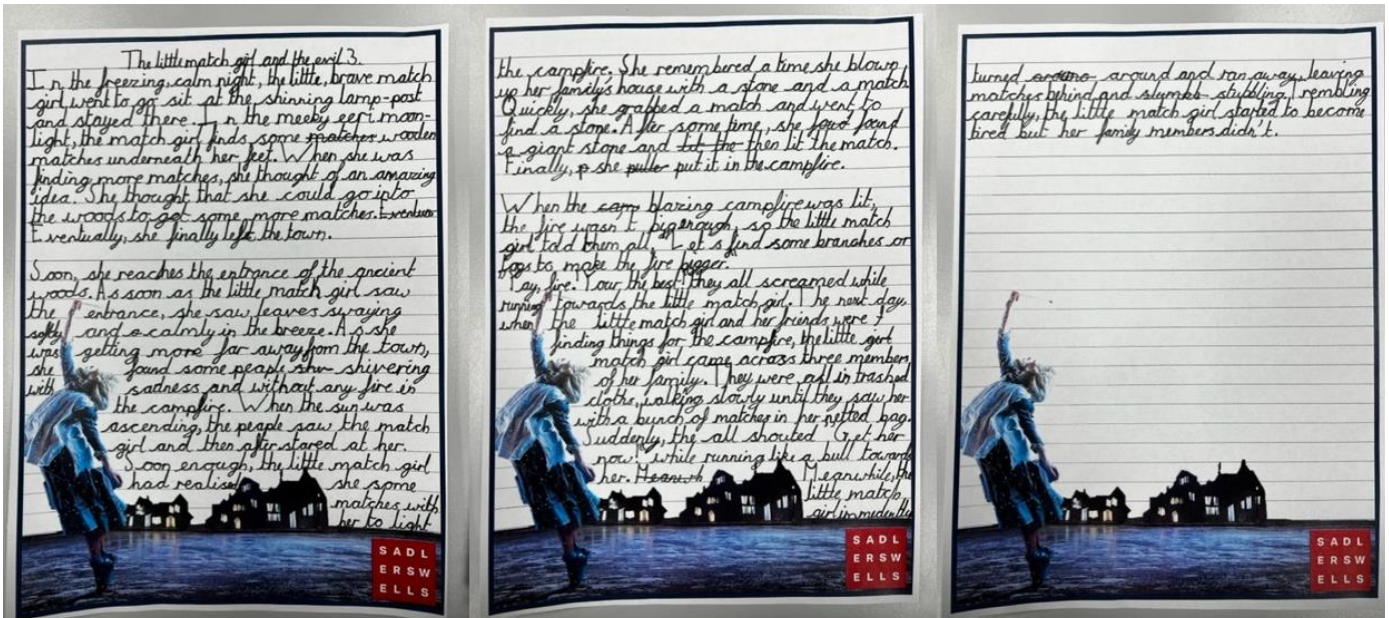 The little match girl and the evil 3.
In the freezing, calm night, the little, brave match
girl went to go sit at the shinning lamp-post
and stayed there. In the meeky eeri moon-
light, the match girl finds some matches wooden
matches underneath her feet. When she was
finding more matches, she thought of an amazing
idea. She thought that she could go into
the woods to get some more matches. Eventuar
Eventually, she finally left the town.
Soon, she reaches the entrance of the ancient
woods. As soon as the little match girl saw
the entrance, she saw leaves swaying
softly and a calmly in the breeze. As she
was getting more far away from the town,
she found some people shw shivering
with sadness and without any fire in
the campfire. When the sun was
ascending, the people saw the match
girl and then after stared at her.
Soon enough, the little match girl
had realised she some
matches with
her to light
the campfire. She remembered a time she blown
up her family's house with a stone and a match
Quickly, she grabbed a match and went to
find a stone. After some time, she found
a giant stone and then lit the match.
Finally, p she puller put it in the campfire.
When the camp blazing campfire was lit,
the fire wasn't big enough, so the little match
girl told them all, "Let's find some branches or
logs to make the fire bigger."
"Yay, fire! Your the best! they all screamed while
running towards the little match girl. The next day,
when the little match girl and her friends were
finding things for the campfire, the little girl
match girl came across three members
of her family. They were all in trashed
cloths, walking slowly until they saw her
with a bunch of matches in her netted bag.
Suddenly, the all shouted "Get her
now!" while running like a bull towards
her. Meanwh Meanwhile, the
little match
girl immedently
turned around and ran away, leaving
matches behind and stumb stubling. Trembling
carefully, the little match girl started to become
tired but her family members didn't.
SADL
ERSW
ELLS
SADL
ERSW
ELLS
SADL
ERSW
ELLS